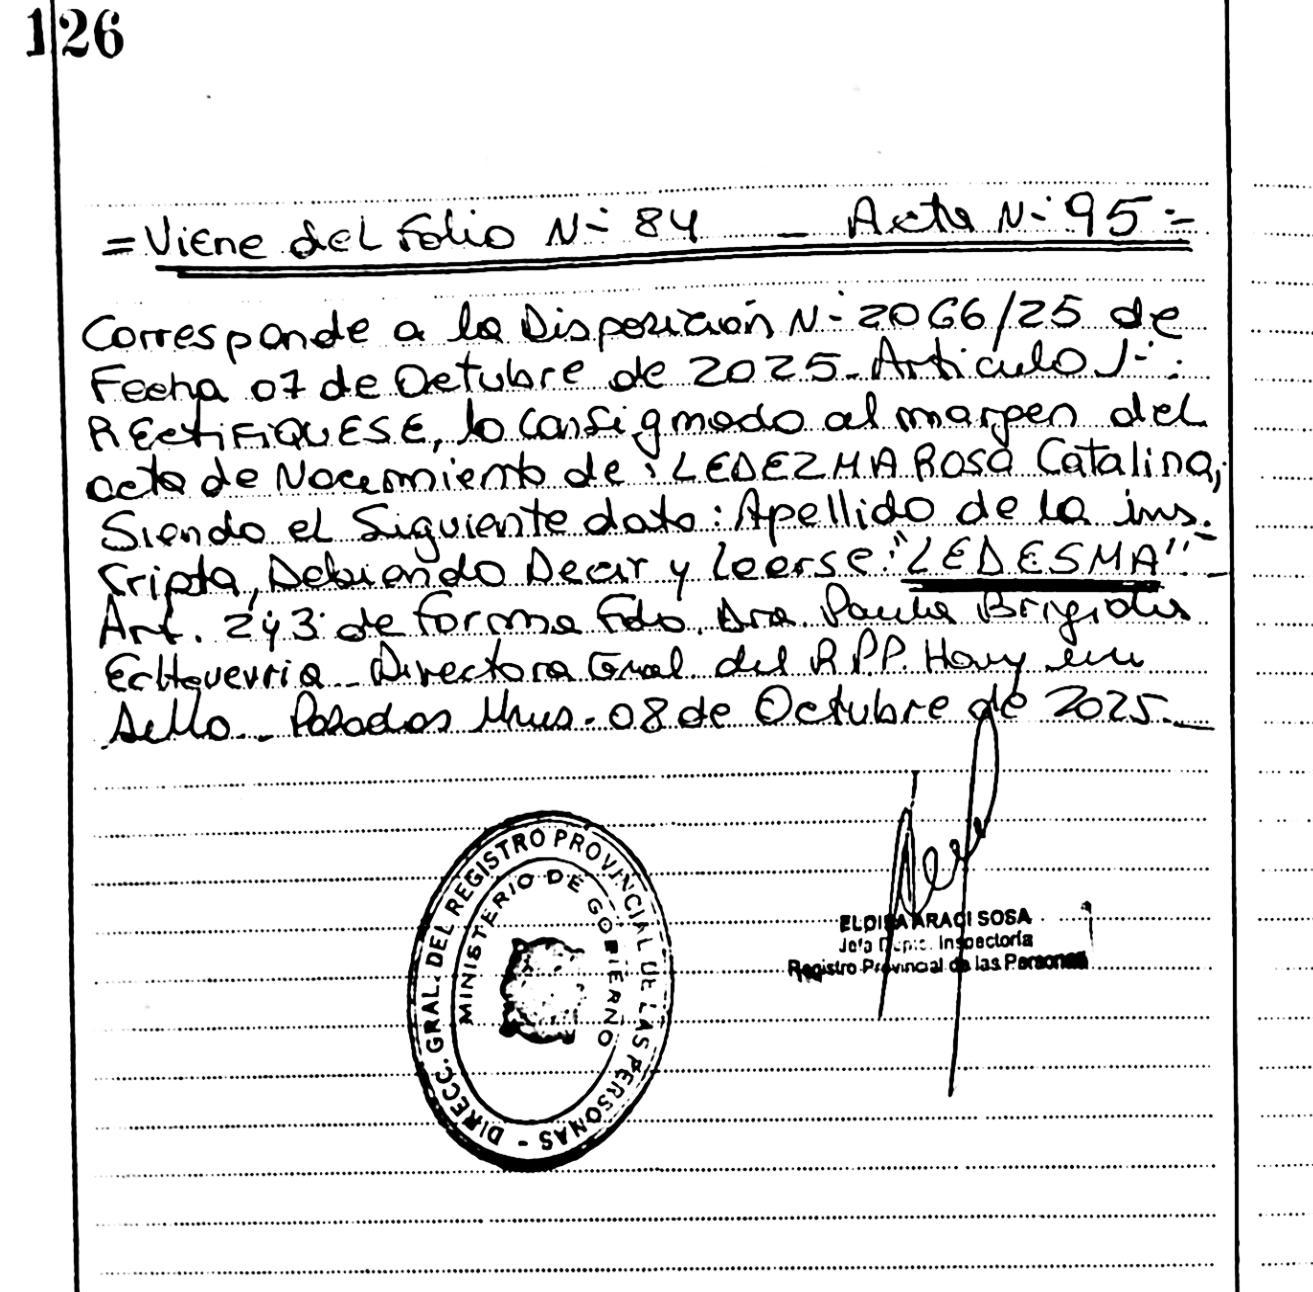 126
= Viene del Folio Nº 84 - Acta Nº 95 =
Corresponde a la Disposición Nº 2066/25 de
Fecha 07 de Octubre de 2025. Articulo 1º:
RECTIFIQUESE, lo Consignado al margen del
acta de Nacimiento de: LEDEZMA Rosa Catalina,
Siendo el Siguiente dato: Apellido de la ins-
cripta, Debiendo Decir y Leerse: "LEDESMA" -
Art. 2 y 3 de forma Fdo. Dra. Paula Brigida
Echeverria - Directora Gral. del R.P.P. Hay un
Sello. - Posadas Mnes. 08 de Octubre de 2025. -
DIRECC. GRAL. DEL REGISTRO PROVINCIAL DE LAS PERSONAS -
MINISTERIO DE GOBIERNO
ELOISA ARACI SOSA
Jefa Dpto. Inspectoría
Registro Provincial de las Personas